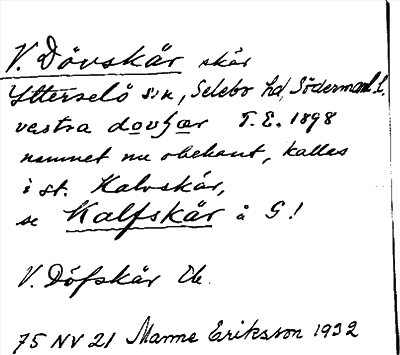 V. Dövskär skär
Ytterselö sn, Selebo hd, Söderman l.
västra dovʃær T.E. 1898
namnet nu obekant, kallas
i st. Kalvskär,
se Kalfskär å G!
V. Döfskär Ek.
75 NV 21 Manne Eriksson 1932